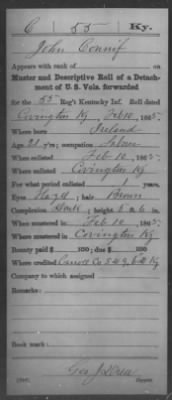 C | 55 | Ky.
John Connif
Appears with rank of
Muster and Descriptive Roll of a Detach-
ment of U. S. Vols. forwarded
for the 55 Reg't Kentucky Inf. Roll dated
Covington Ky, Feb 10, 1865.
Where born Ireland
Age 21 y'rs; occupation
When enlisted Feb 10, 1865.
Where enlisted Covington Ky
For what period enlisted years.
Eyes Hazel; hair Brown
Complexion Dark; height 5 ft. 6 in.
When mustered in Feb 10, 1865.
Where mustered in Covington Ky
Bounty paid $ 100; due $ 100
Where credited Co
Company to which assigned
Remarks:
Book mark:
Geo
Copyist.